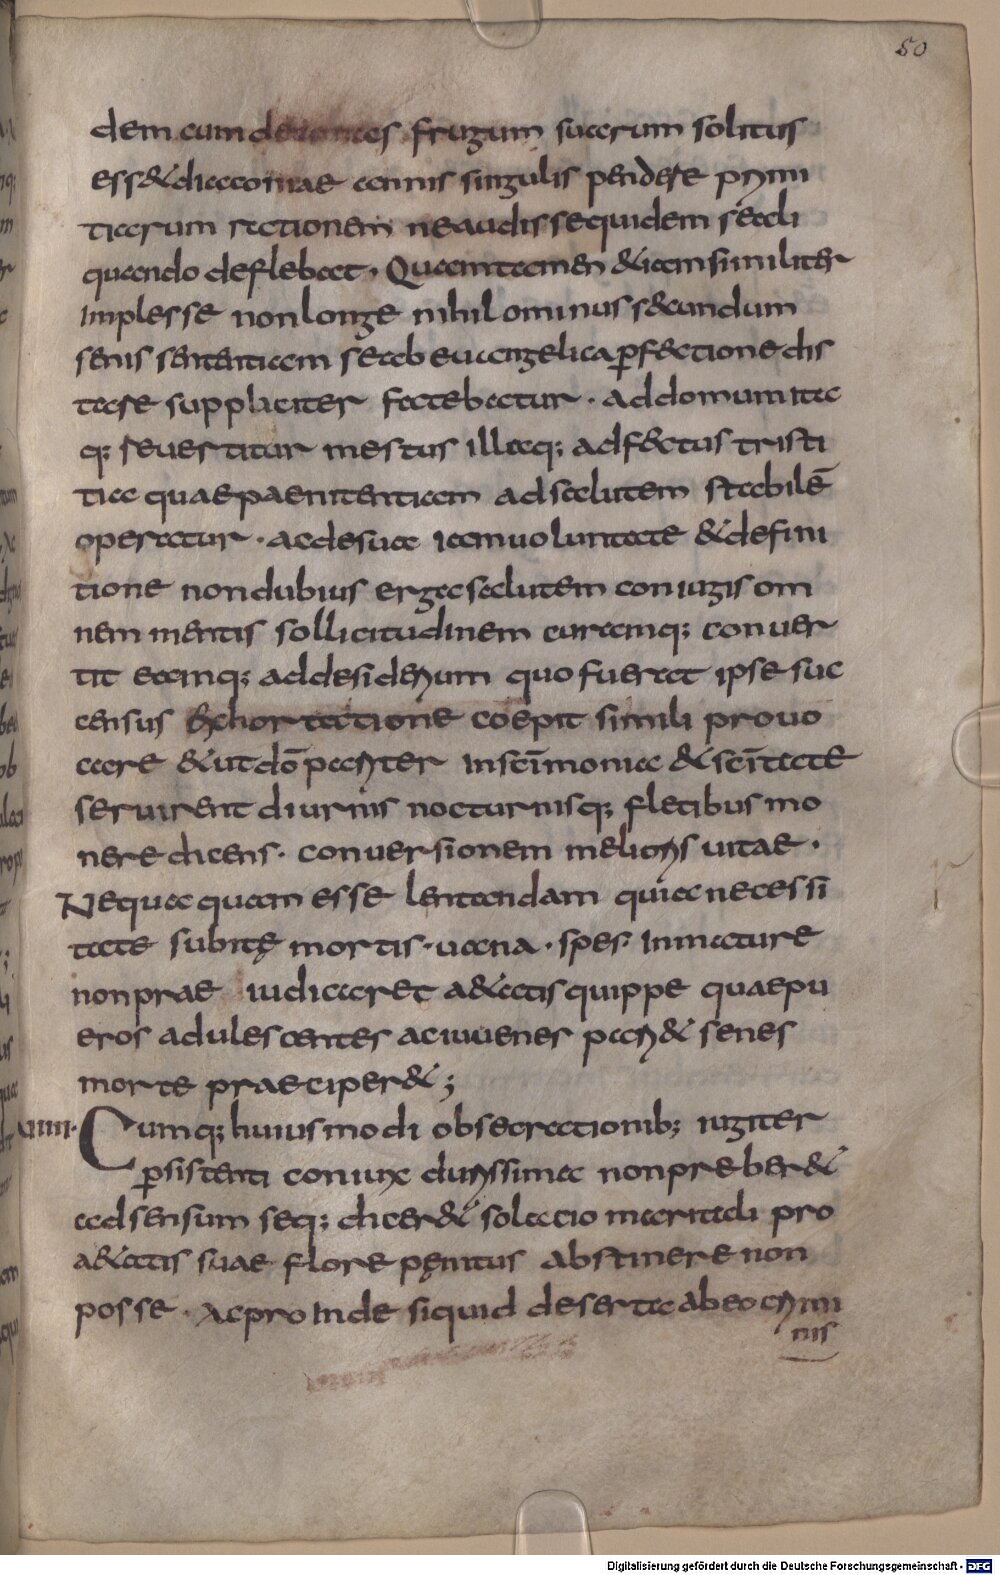 80
dem cum decimas frugum suarum solitus
ess& diaconiae annis singulis pendere primi
tiarum rectionem ne audisse quidem se ali
quando deflebat. Quam tamen &iam similiter
Implesse non longe nihilominus secundum
senis sententiam se ab euangelica pfectione dis
tare suppliciter fatebatur. Ad domum ita
q; reuertitur mestus illaq; adfectus tristi
tia quae paenitentiam ad salutem stabilē
operatur. ac de sua iam uoluntate & defini
tione non dubius erga salutem coniugis om
nem mentis sollicitudinem curamq; conuer
tit eamq; ad desiderium quo fuerat ipse suc
census exhortatione coepit simili prouo
care & ut dō pariter In scimonia & scitate
seruirent diurnis nocturnisq; fletibus mo
nere dicens. conuersionem melioris uitae.
Nequaquam esse lentandam quia necessi
tate subitę mortis. uana. spes. Inmature
non prae iudicaret a&atis quippe quae pu
eros adulescentes ac iuuenes pari& senes
morte praeciper&;
XIIII. Cumq; huiusmodi obsecrationib; iugiter
psistenti coniunx durissima non preber&
adsensum seq; dicer& solacio maritali pro
a&atis suae flore pęnitus abstinere non
posse. ac proinde siquid deserta ab eo crimi
nis
Digitalisierung gefördert durch die Deutsche Forschungsgemeinschaft - DFG